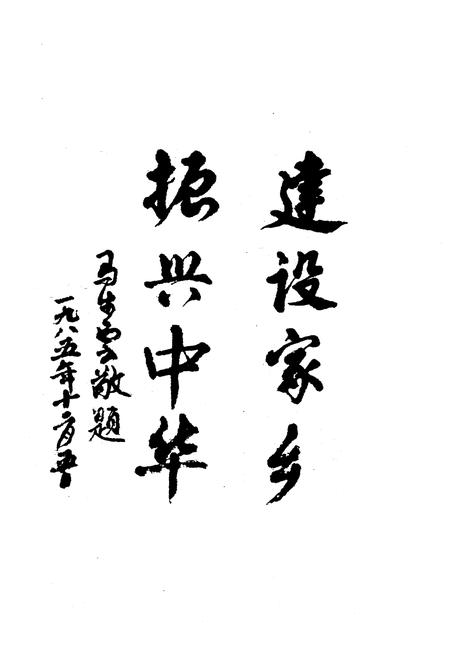 建设家乡
振兴中华
马步云敬题
一九八五年十二月